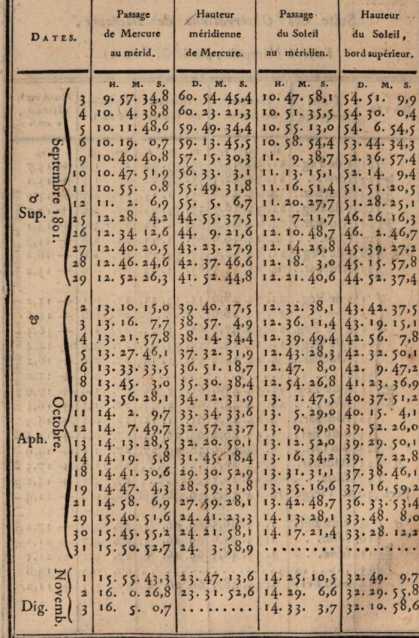 DATES. Passage de Mercure au mérid. Hauteur méridienne de Mercure. Passage du Soleil au méridien. Hauteur du Soleil, bord supérieur.
H. M. S. D. M. S. H. M. S. D. M. S.
Septembre 1801.
3 9. 57. 34,8 60. 54. 45,4 10. 47. 58,1 54. 51. 9,9
4 10. 4. 38,8 60. 23. 21,3 10. 51. 35,5 54. 30. 0,4
5 10. 11. 48,6 59. 49. 34,4 10. 55. 13,0 54. 6. 54,5
6 10. 19. 0,7 59. 13. 45,5 10. 58. 54,4 53. 44. 34,3
9 10. 40. 40,8 57. 15. 30,3 11. 9. 38,7 52. 36. 57,4
10 10. 47. 51,9 56. 33. 3,1 11. 13. 15,1 52. 14. 9,4
11 10. 55. 0,8 55. 49. 31,8 11. 16. 51,4 51. 51. 20,5
☌ Sup.
12 11. 2. 6,9 55. 5. 6,7 11. 20. 27,7 51. 28. 25,1
25 12. 28. 4,2 44. 55. 37,5 12. 7. 11,7 46. 26. 16,3
26 12. 34. 12,6 44. 9. 21,6 12. 10. 48,7 46. 2. 46,7
27 12. 40. 20,5 43. 23. 27,9 12. 14. 25,8 45. 39. 27,2
28 12. 46. 24,6 42. 37. 46,6 12. 18. 3,0 45. 15. 57,8
29 12. 52. 26,3 41. 52. 44,8 12. 21. 40,6 44. 52. 37,4
☋
Octobre.
2 13. 10. 15,0 39. 40. 17,5 12. 32. 38,1 43. 42. 37,5
3 13. 16. 7,7 38. 57. 4,9 12. 36. 11,4 43. 19. 15,1
4 13. 21. 57,8 38. 14. 34,4 12. 39. 49,4 42. 56. 7,8
5 13. 27. 46,1 37. 32. 31,9 12. 43. 28,3 42. 32. 50,1
6 13. 33. 33,5 36. 51. 18,7 12. 47. 8,0 42. 9. 47,2
8 13. 45. 3,0 35. 30. 38,4 12. 54. 26,8 41. 23. 36,9
10 13. 56. 28,1 34. 12. 31,9 13. 1. 47,5 40. 37. 51,2
11 14. 2. 9,7 33. 34. 33,6 13. 5. 29,0 40. 15. 4,1
12 14. 7. 49,7 32. 57. 23,7 13. 9. 9,0 39. 52. 26,0
Aph.
13 14. 13. 28,5 32. 20. 50,1 13. 12. 52,0 39. 29. 50,1
14 14. 19. 5,8 31. 45. 18,4 13. 16. 34,2 39. 7. 22,8
18 14. 41. 30,6 29. 30. 52,9 13. 31. 31,1 37. 38. 46,1
19 14. 47. 4,3 28. 59. 31,8 13. 35. 16,6 37. 16. 59,2
21 14. 58. 6,9 27. 59. 28,1 13. 42. 48,7 36. 33. 53,4
29 15. 40. 51,6 24. 41. 23,3 14. 13. 28,1 33. 48. 8,0
30 15. 45. 55,2 24. 21. 58,1 14. 17. 21,4 33. 28. 12,2
31 15. 50. 52,7 24. 3. 58,9 ......... .........
Novemb.
1 15. 55. 43,3 23. 47. 13,6 14. 25. 10,5 32. 49. 9,7
2 16. 0. 26,8 23. 31. 52,6 14. 29. 6,6 32. 29. 55,8
Dig. 3 16. 5. 0,7 ......... 14. 33. 3,7 32. 10. 58,6